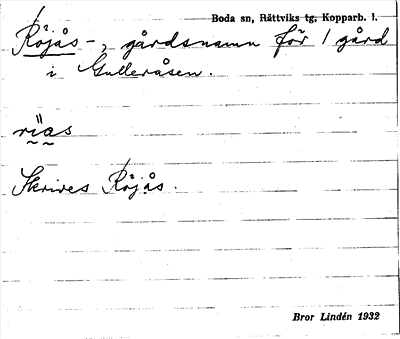 Boda sn, Rättviks tg, Kopparb. l.
Röjås-, gårdsnamn för 1 gård
i Gulleråsen.
Skrives Röjås.
Bror Lindén 1932